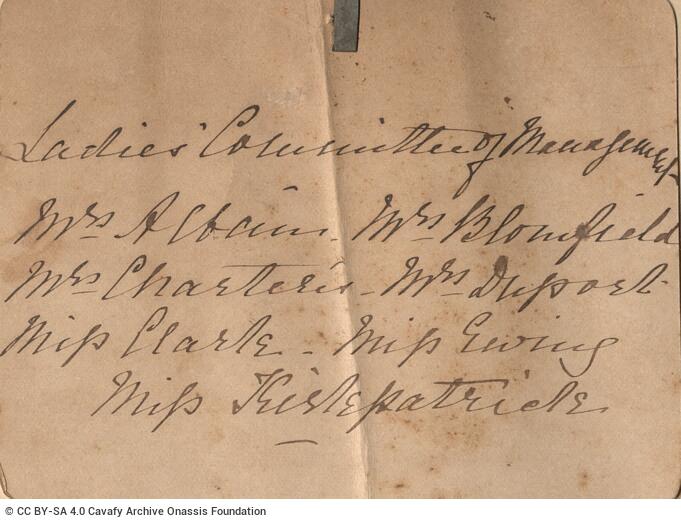 Ladies' Committee of Management
Mrs Albain - Mrs Blomfield
Mrs Charteris - Mrs Duport
Miss Clark - Miss Ewing
Miss Kirkpatrick
© CC BY-SA 4.0 Cavafy Archive Onassis Foundation